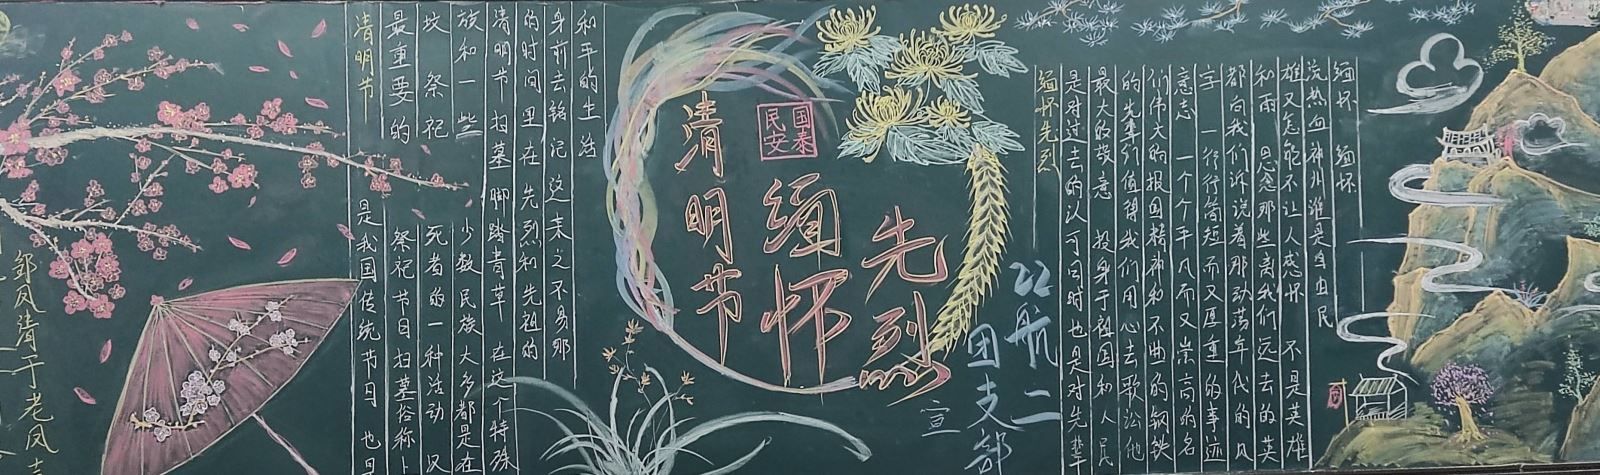 凤清于老凤
清明节
是我国传统节日 也是
最重要的 祭祀节日扫墓俗称上
坟 祭祀 死者的一种活动 汉
族和一些 少数民族大多都是在
清明节扫墓脚踏青草 在这个特殊
的时间里在先烈和先祖的
身前去铭记 这来之不易那
和平的生活
清明节
国泰民安
缅怀
先烈
22航二
团支部
宣
缅怀先烈
是对过去的认可同时也是对先辈
最大的敬意 投身于祖国和人民
的先辈们值得我们用心去歌讼他
们伟大的报国精神和不屈的钢铁
意志 一个个平凡而又崇高的名
字 一行行简短而又厚重的事迹
都向我们诉说着那动荡年代的风
和雨 思念那些离我们远去的英
雄又怎能不让人感怀 不是英雄
浇热血神州谁是自由民
缅怀 缅怀